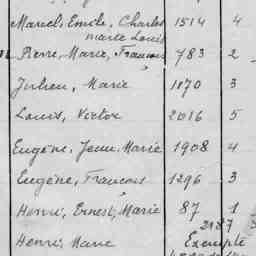 Marcel, Emile, Charles 1514 4
Marie Louis
Pierre, Marie, Francois 783 2
Julien, Marie 1070 3
Louis, Victor 2016 5
Eugène, Jean Marie 1908 4
Eugène, Francois 1296 3
Henri, Ernest, Marie 87 1
2187
Henri, Marie Exempté